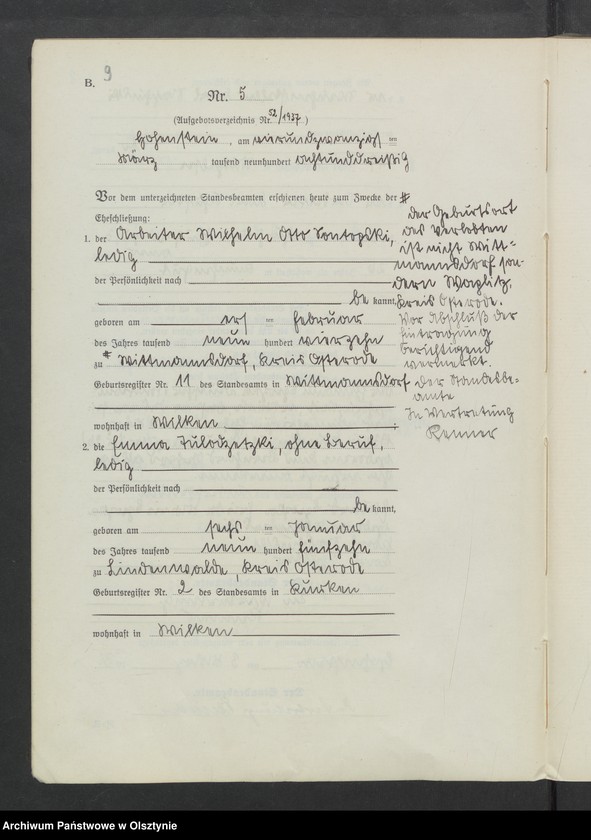 B.
9
Nr. 5
(Aufgebotsverzeichnis Nr. 52/1937)
Hohenstein, am vierundzwanzigsten
März tausend neunhundert achtunddreißig
Vor dem unterzeichneten Standesbeamten erschienen heute zum Zwecke der
Eheschließung:
1. der Arbeiter Wilhelm Otto Sontopski,
ledig
der Persönlichkeit nach
be kannt,
geboren am ers ten Februar
des Jahres tausend neun hundert vierzehn
zu # Wittmannsdorf, Kreis Osterode
Geburtsregister Nr. 11 des Standesamts in Wittmannsdorf
wohnhaft in Wilken
2. die Emma Tulodzetzki, ohne Beruf,
ledig
der Persönlichkeit nach
be kannt,
geboren am sechs ten Januar
des Jahres tausend neun hundert fünfzehn
zu Lindenwalde, Kreis Osterode
Geburtsregister Nr. 2 des Standesamts in Kurken
wohnhaft in Wilken
# der Geburtsort
des Verlobten
ist nicht Witt=
mannsdorf son-
dern Waplitz,
Kreis Osterode.
Vor Abschluß der
Eintragung
berichtigend
vermerkt.
Der Standesbe-
amte
In Vertretung
Renner
Archiwum Państwowe w Olsztynie